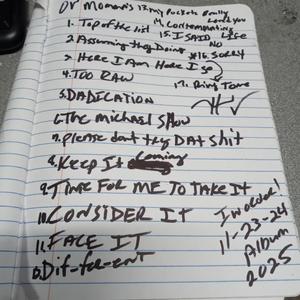 Dr Moman's 13. my pockets Really Love you
1. Top of the list 14. Contemplating LIFE
2. Assuming they Doing 15. I SAID NO
3. Here I Am Here I go #16. Sorry
4. TOO RAW 17. Ring Tone
5. DADICATION
6. The michael Show
7. please dont try DAT shit
8. Keep It Coming
9. TIME FOR ME TO TAKE IT
10. CONSIDER IT
11. FACE IT
12. Dif-fer-ent
In order!
11-23-24
Album
2025